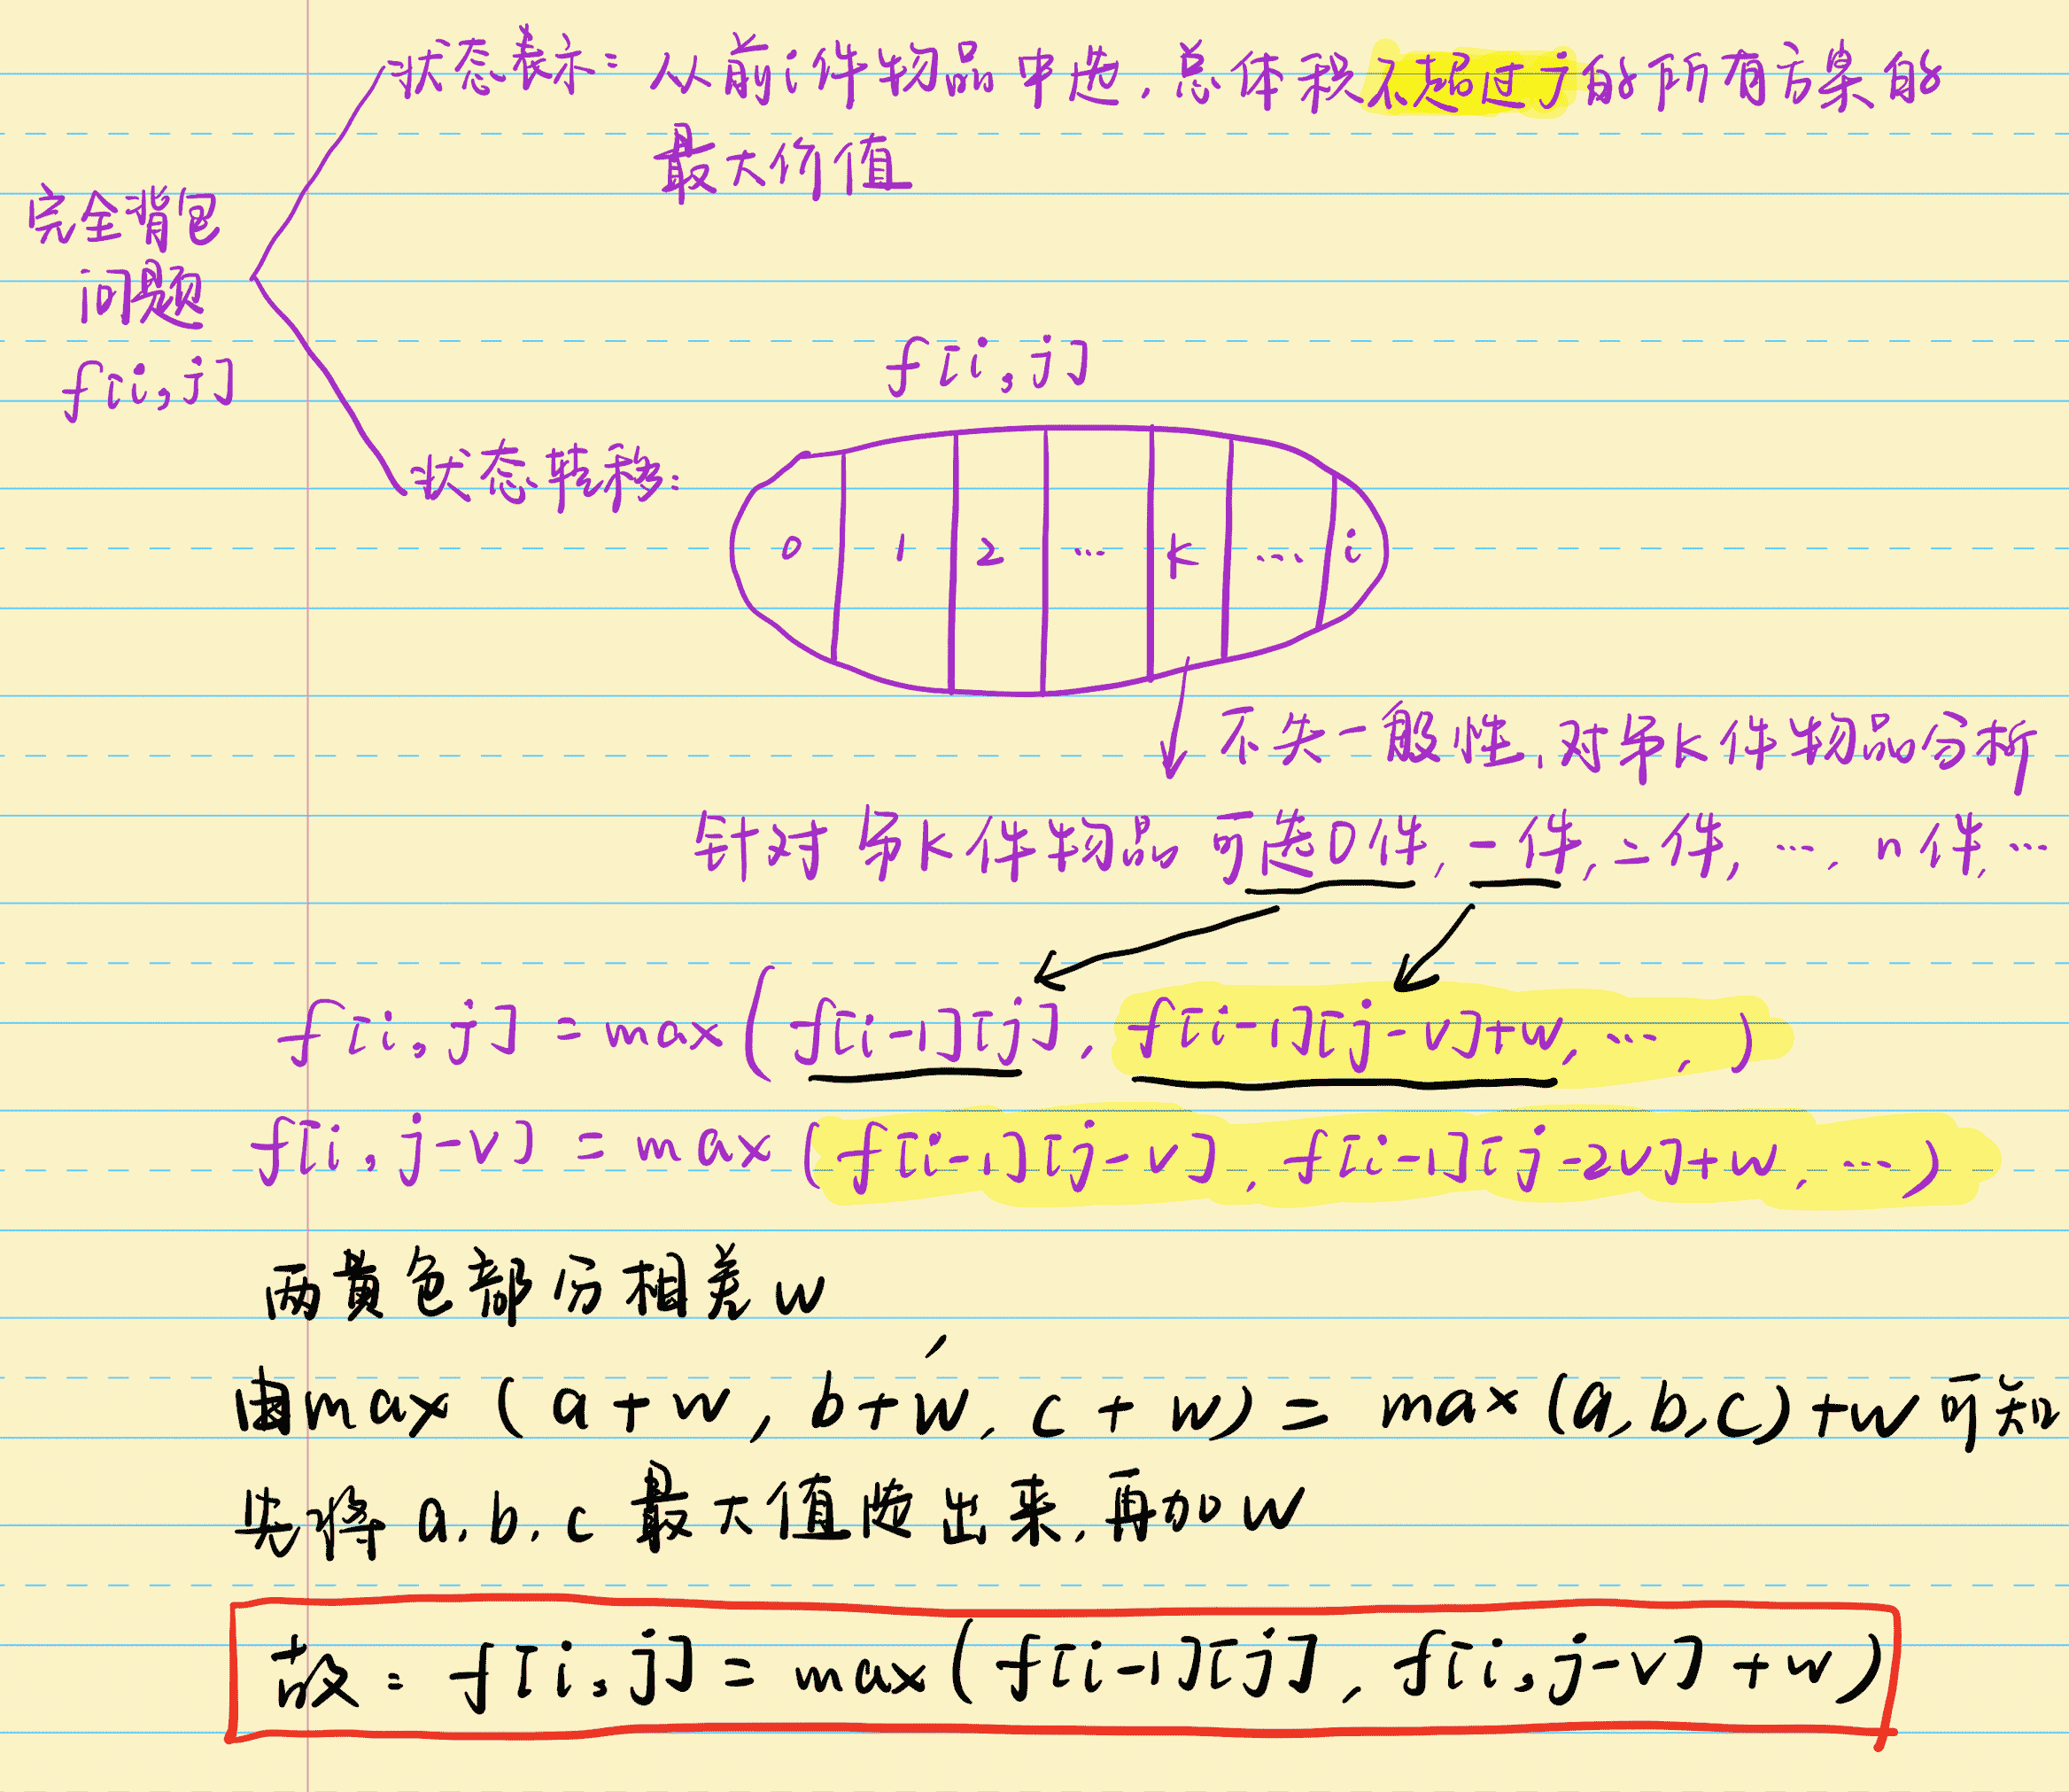 状态表示：从前i件物品中选，总体积不超过j的所有方案的
最大价值
完全背包
问题
f[i,j]
f[i,j]
状态转移：
0 1 2 ... k ... i
不失一般性，对第k件物品分析
针对第k件物品可选0件，一件，二件，...，n件，...
f[i,j] = max(f[i-1][j], f[i-1][j-v]+w, ..., )
f[i,j-v] = max(f[i-1][j-v], f[i-1][j-2v]+w, ...)
两黄色部分相差w
由max(a+w, b+w, c+w) = max(a,b,c)+w可知
先将a,b,c最大值选出来，再加w
故：f[i,j] = max(f[i-1][j], f[i,j-v]+w)